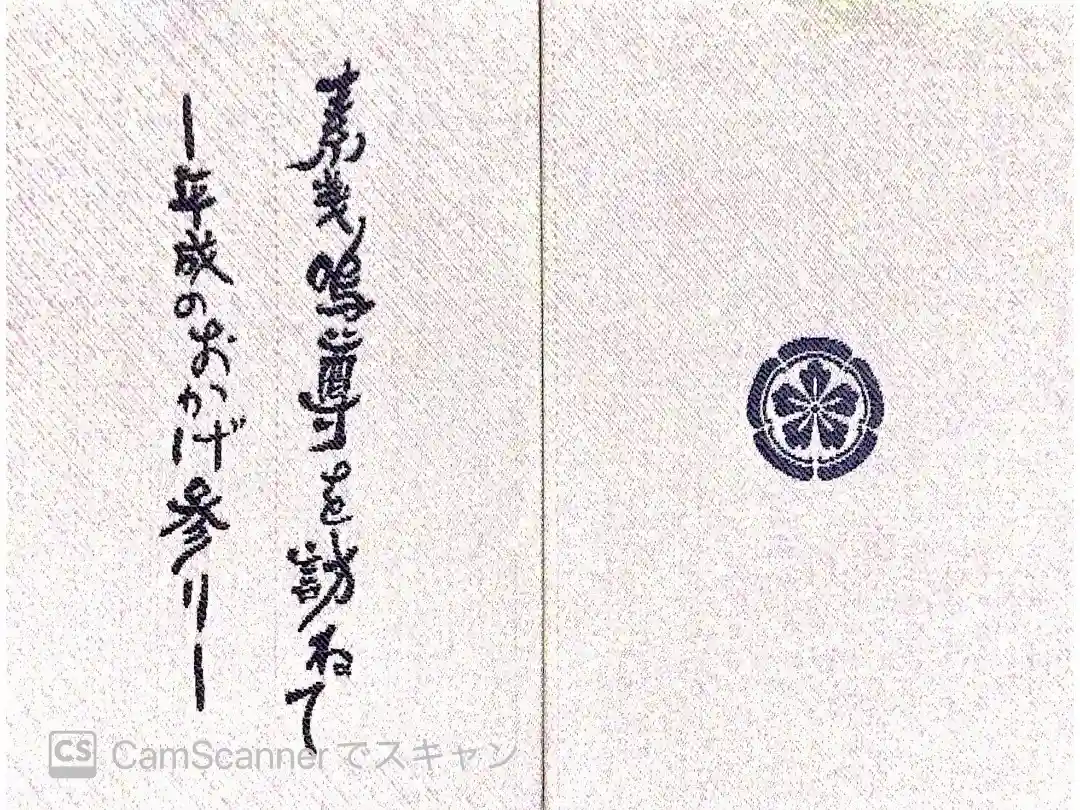 素戔嗚尊を訪ねて
ー年歳のおかげ参りー
CS CamScanner でスキャン